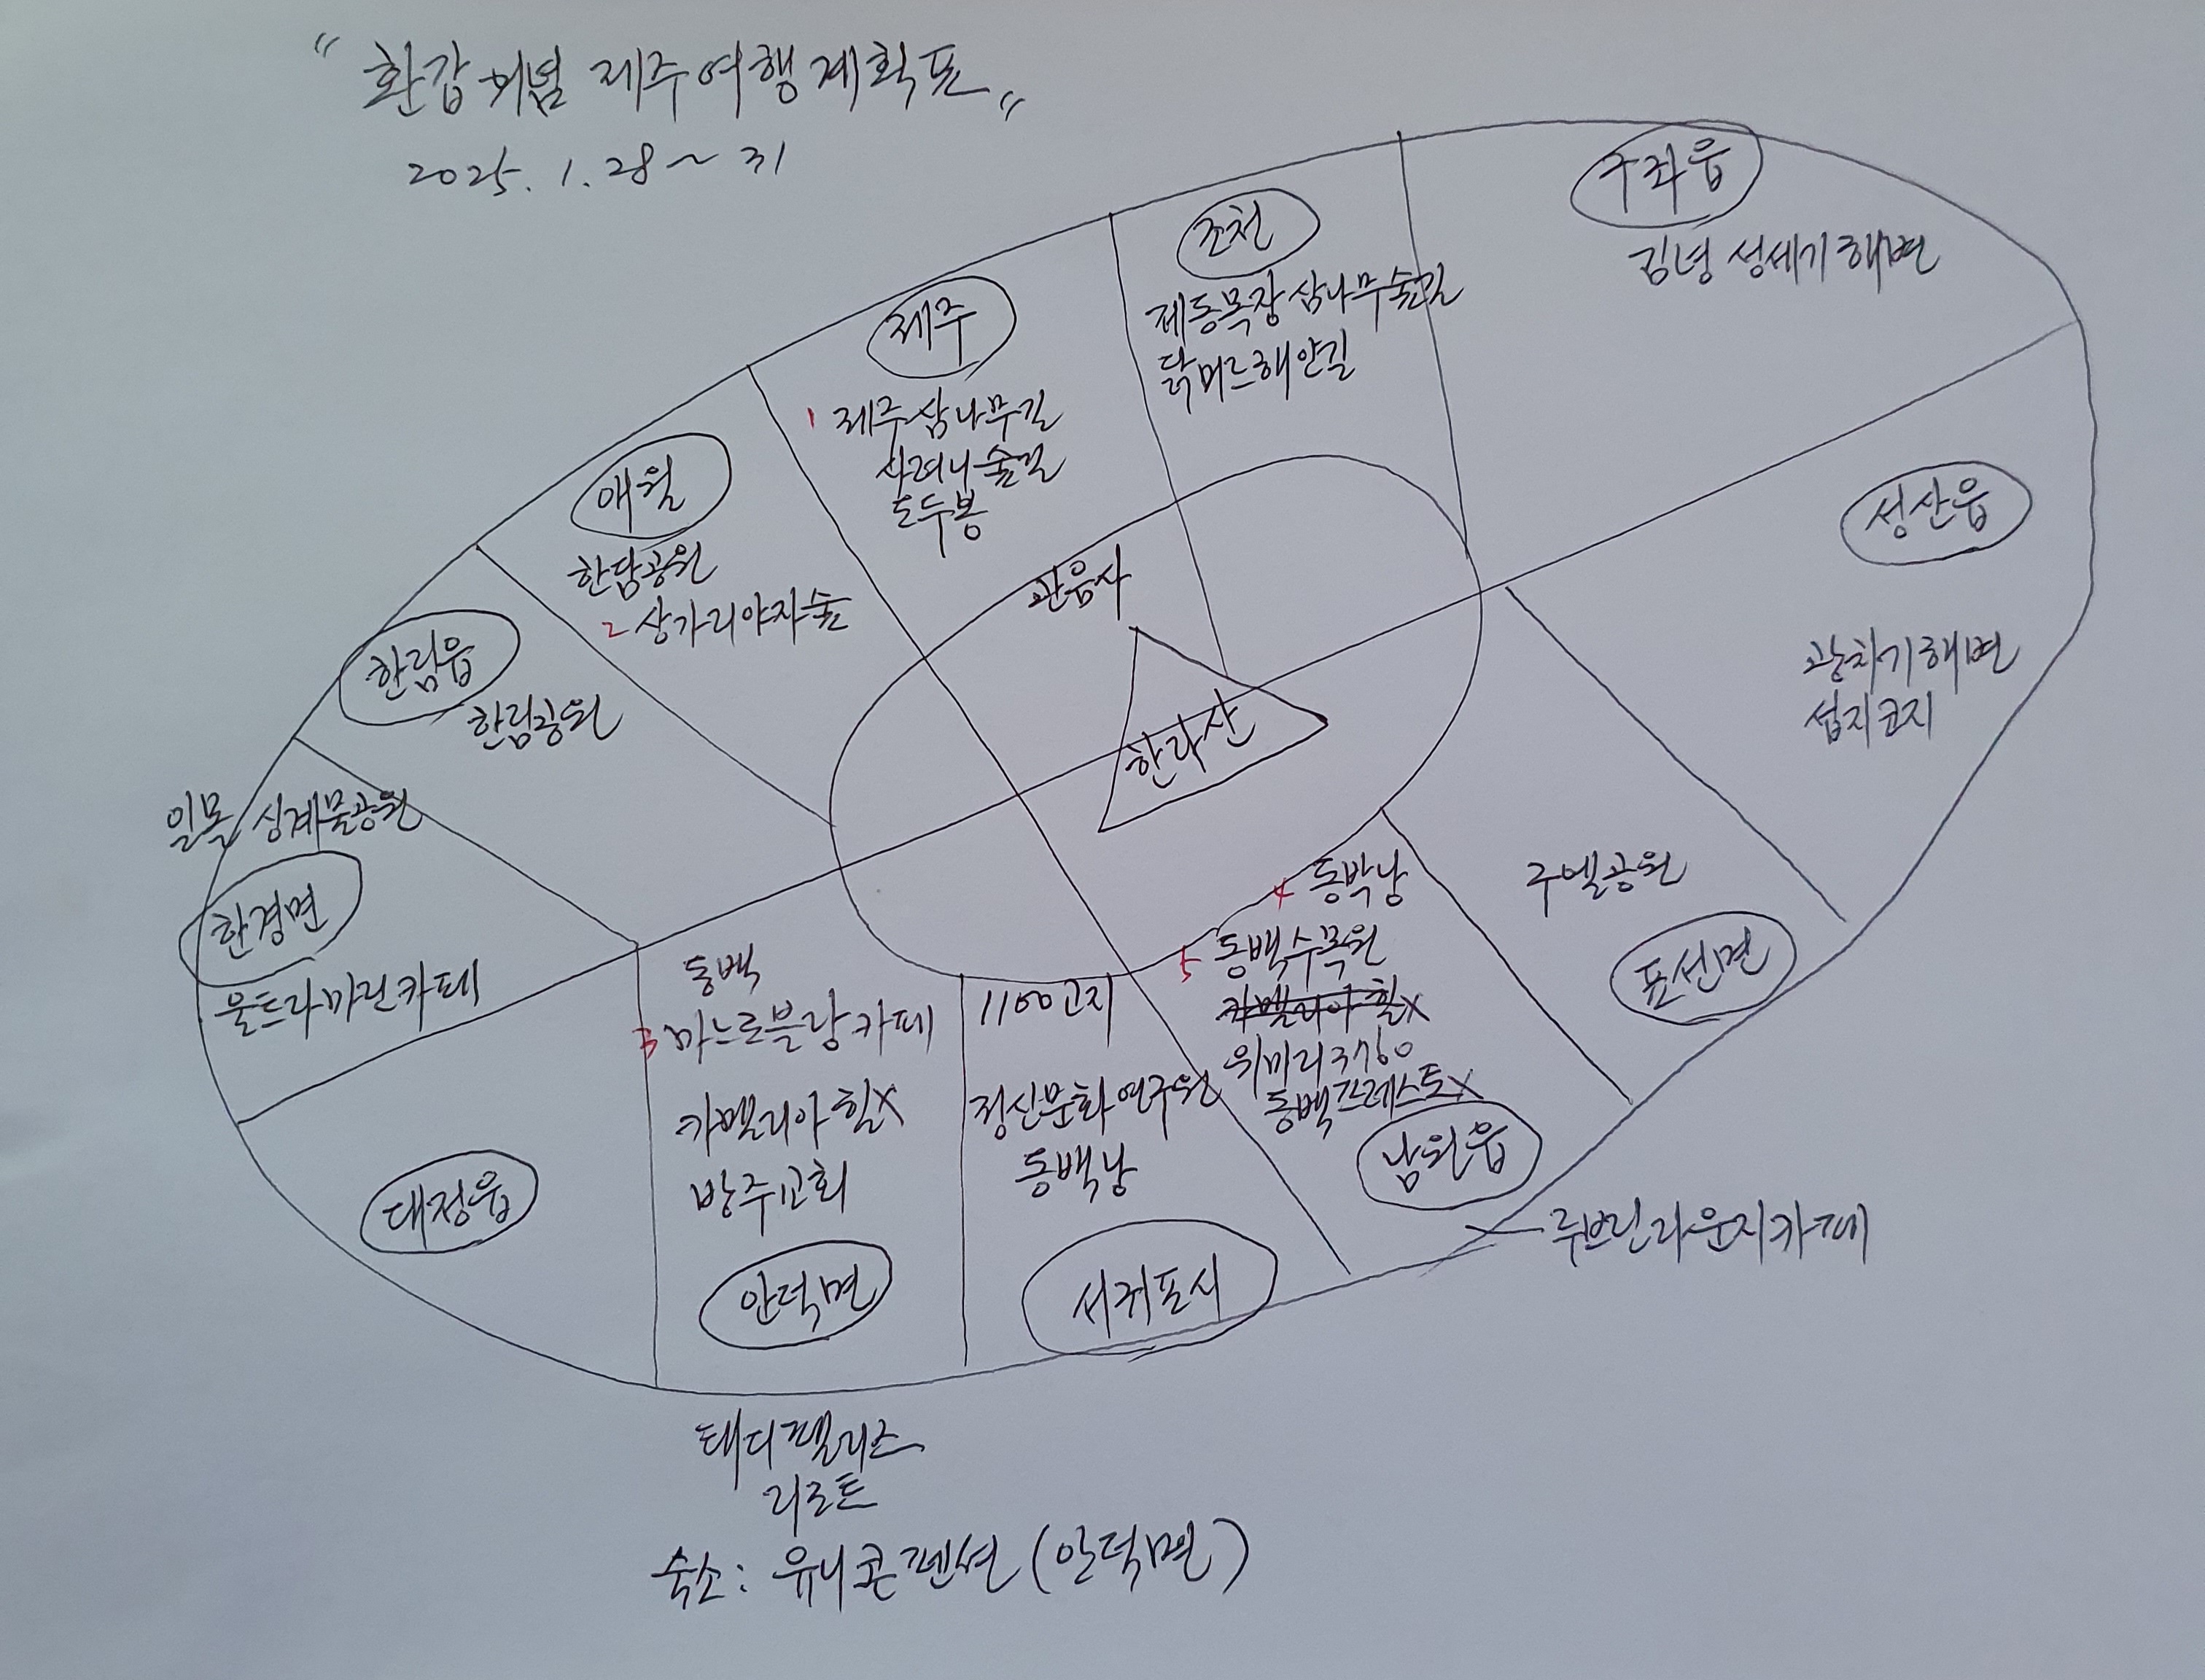 "환갑기념 제주여행계획표"
2025. 1. 28 ~ 31
구좌읍
김녕 성세기해변
조천
제동목장 삼나무숲길
닭머르해안길
제주
1 제주삼나무길
사려니숲길
도두봉
애월
한담공원
2 상가리야자숲
한림읍
한림공원
성산읍
광치기해변
섭지코지
관음사
한라산
일몰 싱계물공원
한경면
울트라마린카페
대정읍
동백
3 마노르블랑카페
카멜리아힐X
방주교회
안덕면
1100고지
정신문화연구원
동백낭
서귀포시
4 동박낭
5 동백수목원
카멜리아힐X
위미리3760
동백프레스토X
남원읍
구엘공원
표선면
루브린라운지카페
태디팰리스
리조트
숙소: 유니콘펜션(안덕면)